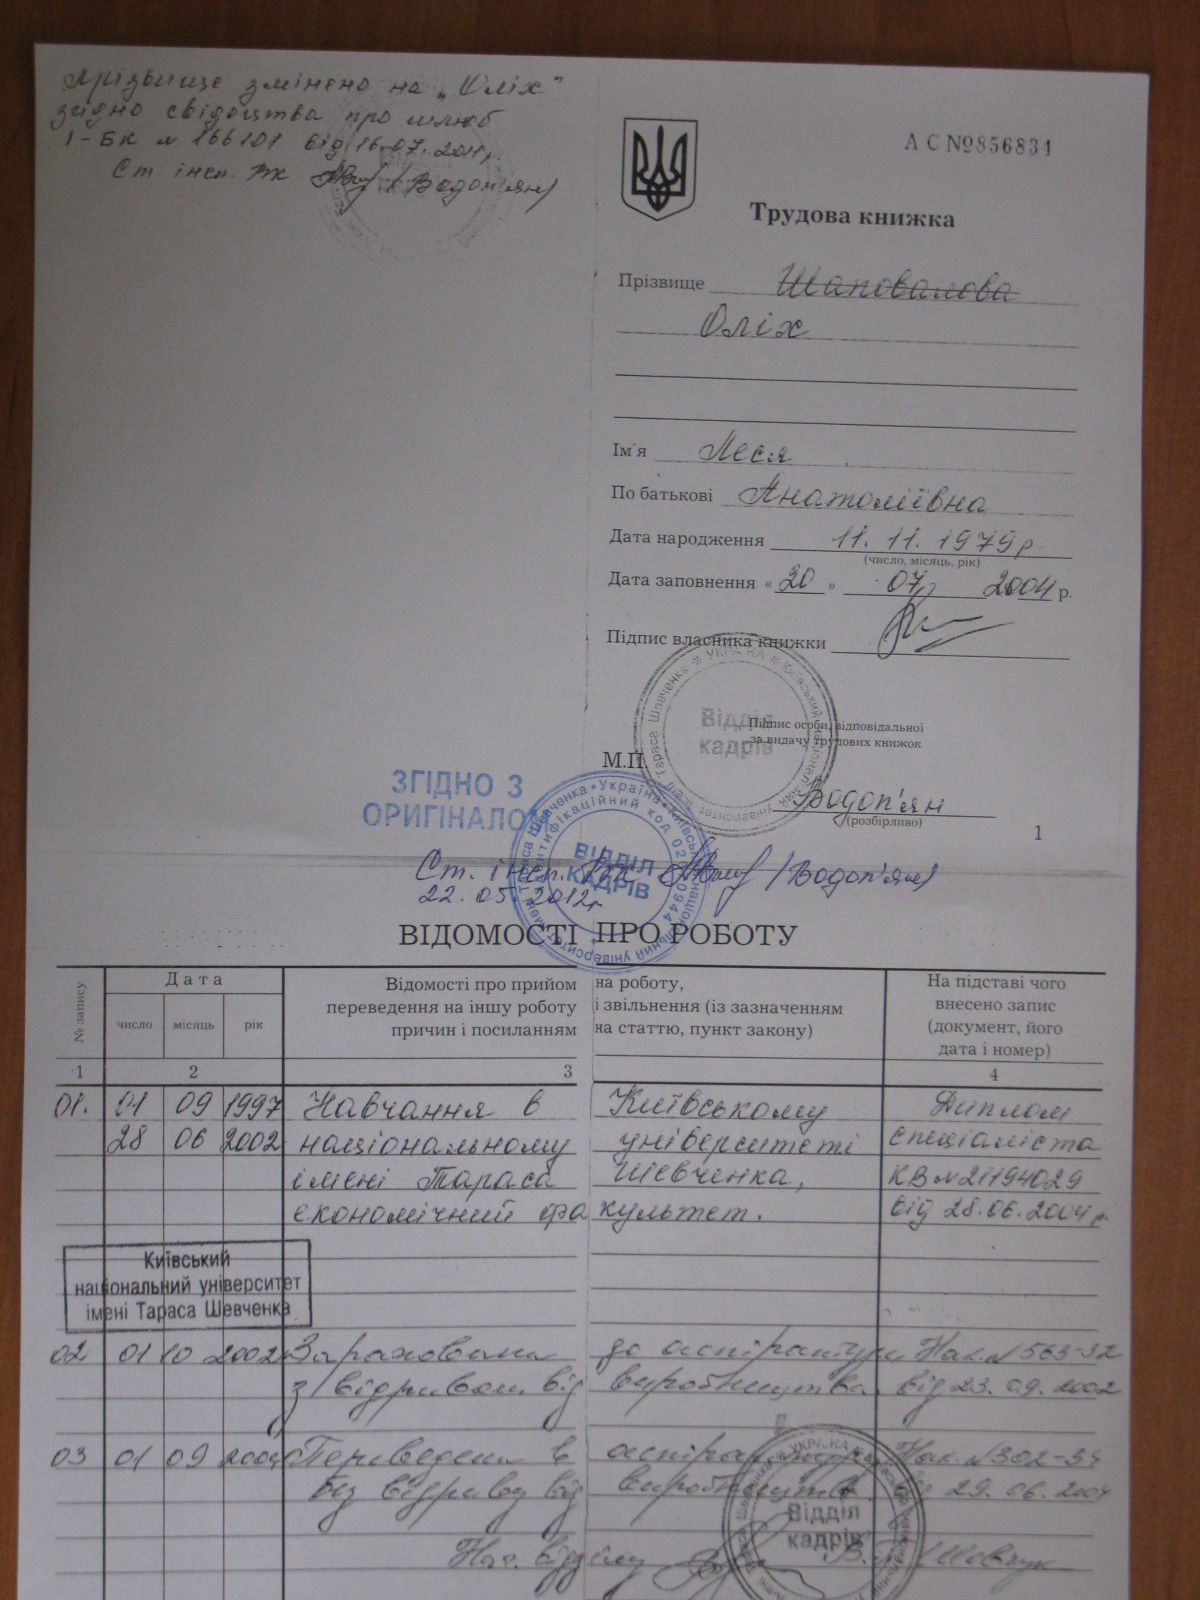 Прізвище змінено на „Оліх"
згідно свідоцтва про шлюб
І-БК № 166101 від 16.07.2011р.
Ст. інсп. ВК /Водоп'ян/
АС №856834
Трудова книжка
Прізвище Шаповалова
Оліх
Ім'я Леся
По батькові Анатоліївна
Дата народження 11. 11. 1979р.
(число, місяць, рік)
Дата заповнення «20» 07 2004 р.
Підпис власника книжки
Підпис особи, відповідальної
за видачу трудових книжок
Відділ
кадрів
М.П.
Водоп'ян
(розбірливо)
1
ЗГІДНО З
ОРИГІНАЛОМ
ВІДДІЛ
КАДРІВ
Ст. інсп. ВК /Водоп'ян/
22. 05. 2012р
ВІДОМОСТІ ПРО РОБОТУ
№ запису
Дата
число місяць рік
Відомості про прийом на роботу,
переведення на іншу роботу і звільнення (із зазначенням
причин і посиланням на статтю, пункт закону)
На підставі чого
внесено запис
(документ, його
дата і номер)
1 2 3 4
01. 01 09 1997 Навчання в Київському Диплом
28 06 2002 національному університеті спеціаліста
імені Тараса Шевченка, КВ №21194029
економічний факультет. від 28.06.2004 р.
Київський
національний університет
імені Тараса Шевченка
02 01 10 2002 Зарахована до аспірантури Нак. № 563-32
з відривом від виробництва. від 23. 09. 2002
03 01 09 2004 Переведена в аспірантуру Нак. №302-34
без відриву від виробництва. від 29. 06. 2004
Відділ
кадрів
Нач. відділу В. Шевчук